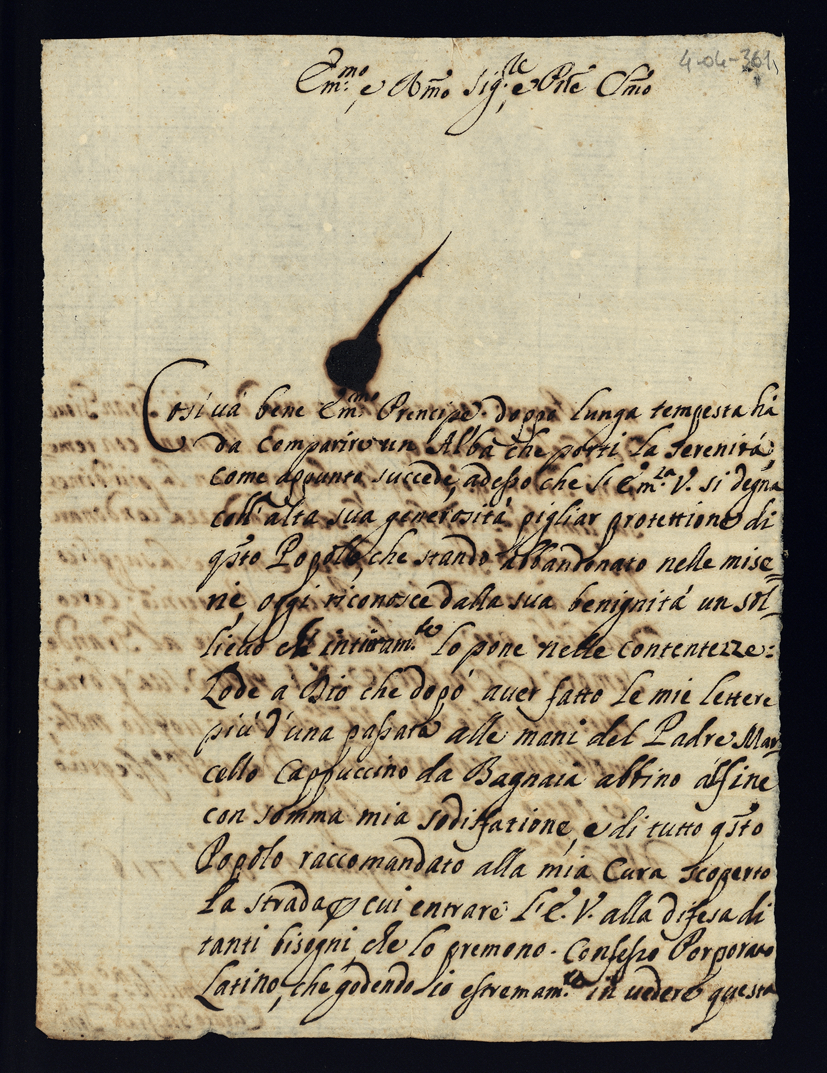 4-04-301
Em.mo, e Rmo Sig.re, e Pne Cmo
Cosi uà bene Em.mo Prencipe. doppò lunga tempesta hà
da comparire un Alba che porti la serenità,
come appunto succede, adesso che l'Em.za V. si degna
coll'alta sua generosità pigliar protettione di
qsto Popolo, che stando abbandonato nelle mise=
rie, oggi riconosce dalla sua benignità un sol=
lieuo che intieram.te lo pone nelle contentezze:
Lode a Dio che dopò auer fatto le mie lettere
più d'una passata alle mani del Padre Mar=
cello Cappuccino da Bagnaia abbino alfine
con somma mia sodisfatione, e di tutto qsto
Popolo raccomandato alla mia Cura scoperto
la strada p cui entrare l'E. V. alla difesa di
tanti bisogni, che lo premono. Confesso Porporato
Latino, che godendo io estremam.te in uedere questa